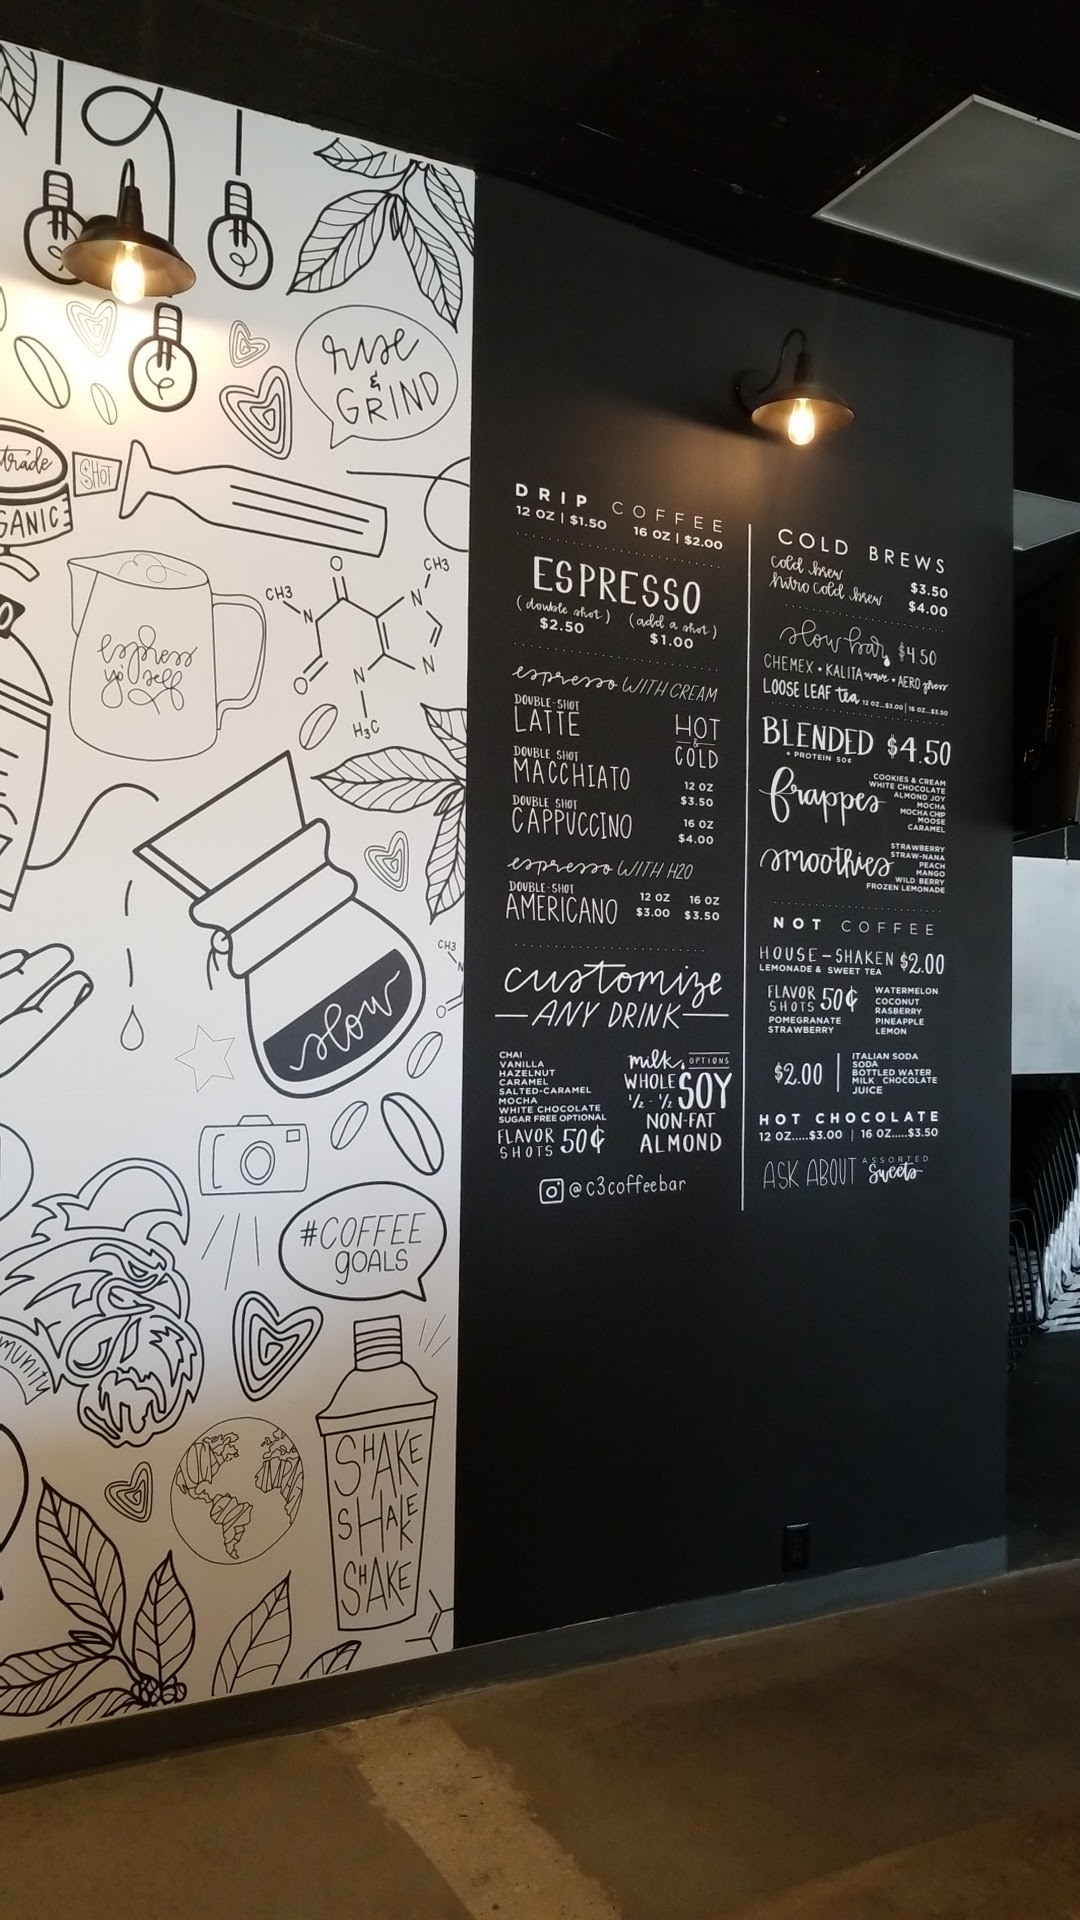 rise
&
GRIND
trade
SHOT
GANIC
espress
yo' self
CH3
O
CH3
N
N
O
N
N
H3C
slow
CH3
N
O
#COFFEE
gOALS
MUNITY
SHAKE
SHAKE
SHAKE
DRIP COFFEE
12 OZ | $1.50 16 OZ | $2.00
ESPRESSO
(double shot) (add a shot)
$2.50 $1.00
espresso WITH CREAM
DOUBLE-SHOT
LATTE
DOUBLE SHOT
MACCHIATO
DOUBLE SHOT
CAPPUCCINO
HOT
&
COLD
12 OZ
$3.50
16 OZ
$4.00
espresso WITH H2O
DOUBLE-SHOT
AMERICANO
12 OZ 16 OZ
$3.00 $3.50
customize
ANY DRINK
CHAI
VANILLA
HAZELNUT
CARAMEL
SALTED-CARAMEL
MOCHA
WHITE CHOCOLATE
SUGAR FREE OPTIONAL
FLAVOR SHOTS 50¢
milk OPTIONS
WHOLE SOY
½ - ½
NON-FAT
ALMOND
@c3coffeebar
COLD BREWS
cold brew $3.50
nitro cold brew $4.00
slow bar $4.50
CHEMEX • KALITA wave • AERO press
LOOSE LEAF tea 12 OZ...$3.00 | 16 OZ...$3.50
BLENDED $4.50
+ PROTEIN 50¢
frappes
COOKIES & CREAM
WHITE CHOCOLATE
ALMOND JOY
MOCHA
MOCHA CHIP
MOOSE
CARAMEL
smoothies
STRAWBERRY
STRAW-NANA
PEACH
MANGO
WILD BERRY
FROZEN LEMONADE
NOT COFFEE
HOUSE-SHAKEN $2.00
LEMONADE & SWEET TEA
FLAVOR SHOTS 50¢
POMEGRANATE
STRAWBERRY
WATERMELON
COCONUT
RASBERRY
PINEAPPLE
LEMON
$2.00
ITALIAN SODA
SODA
BOTTLED WATER
MILK CHOCOLATE
JUICE
HOT CHOCOLATE
12 OZ.....$3.00 | 16 OZ.....$3.50
ASK ABOUT ASSORTED Sweets